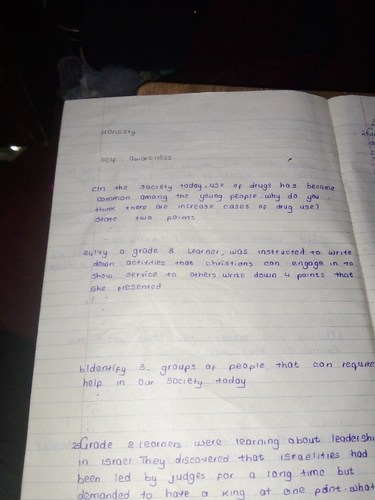 Honesty
Self awareness
c)In the society today.use of drugs has become
common among the young people.why do you
think there are increase cases of drug use?
State two points
a grade 8 learner, was instructed to write
down activities that christians can engage in to
show service to others.write down 4 points that
she presented
b)Identify 3 groups of people that can require
help in our society today
Grade 8 learners were learning about leadership
in israel They discovered that israelities had
been led by judges for a long time but
demanded to have a king at one point.what